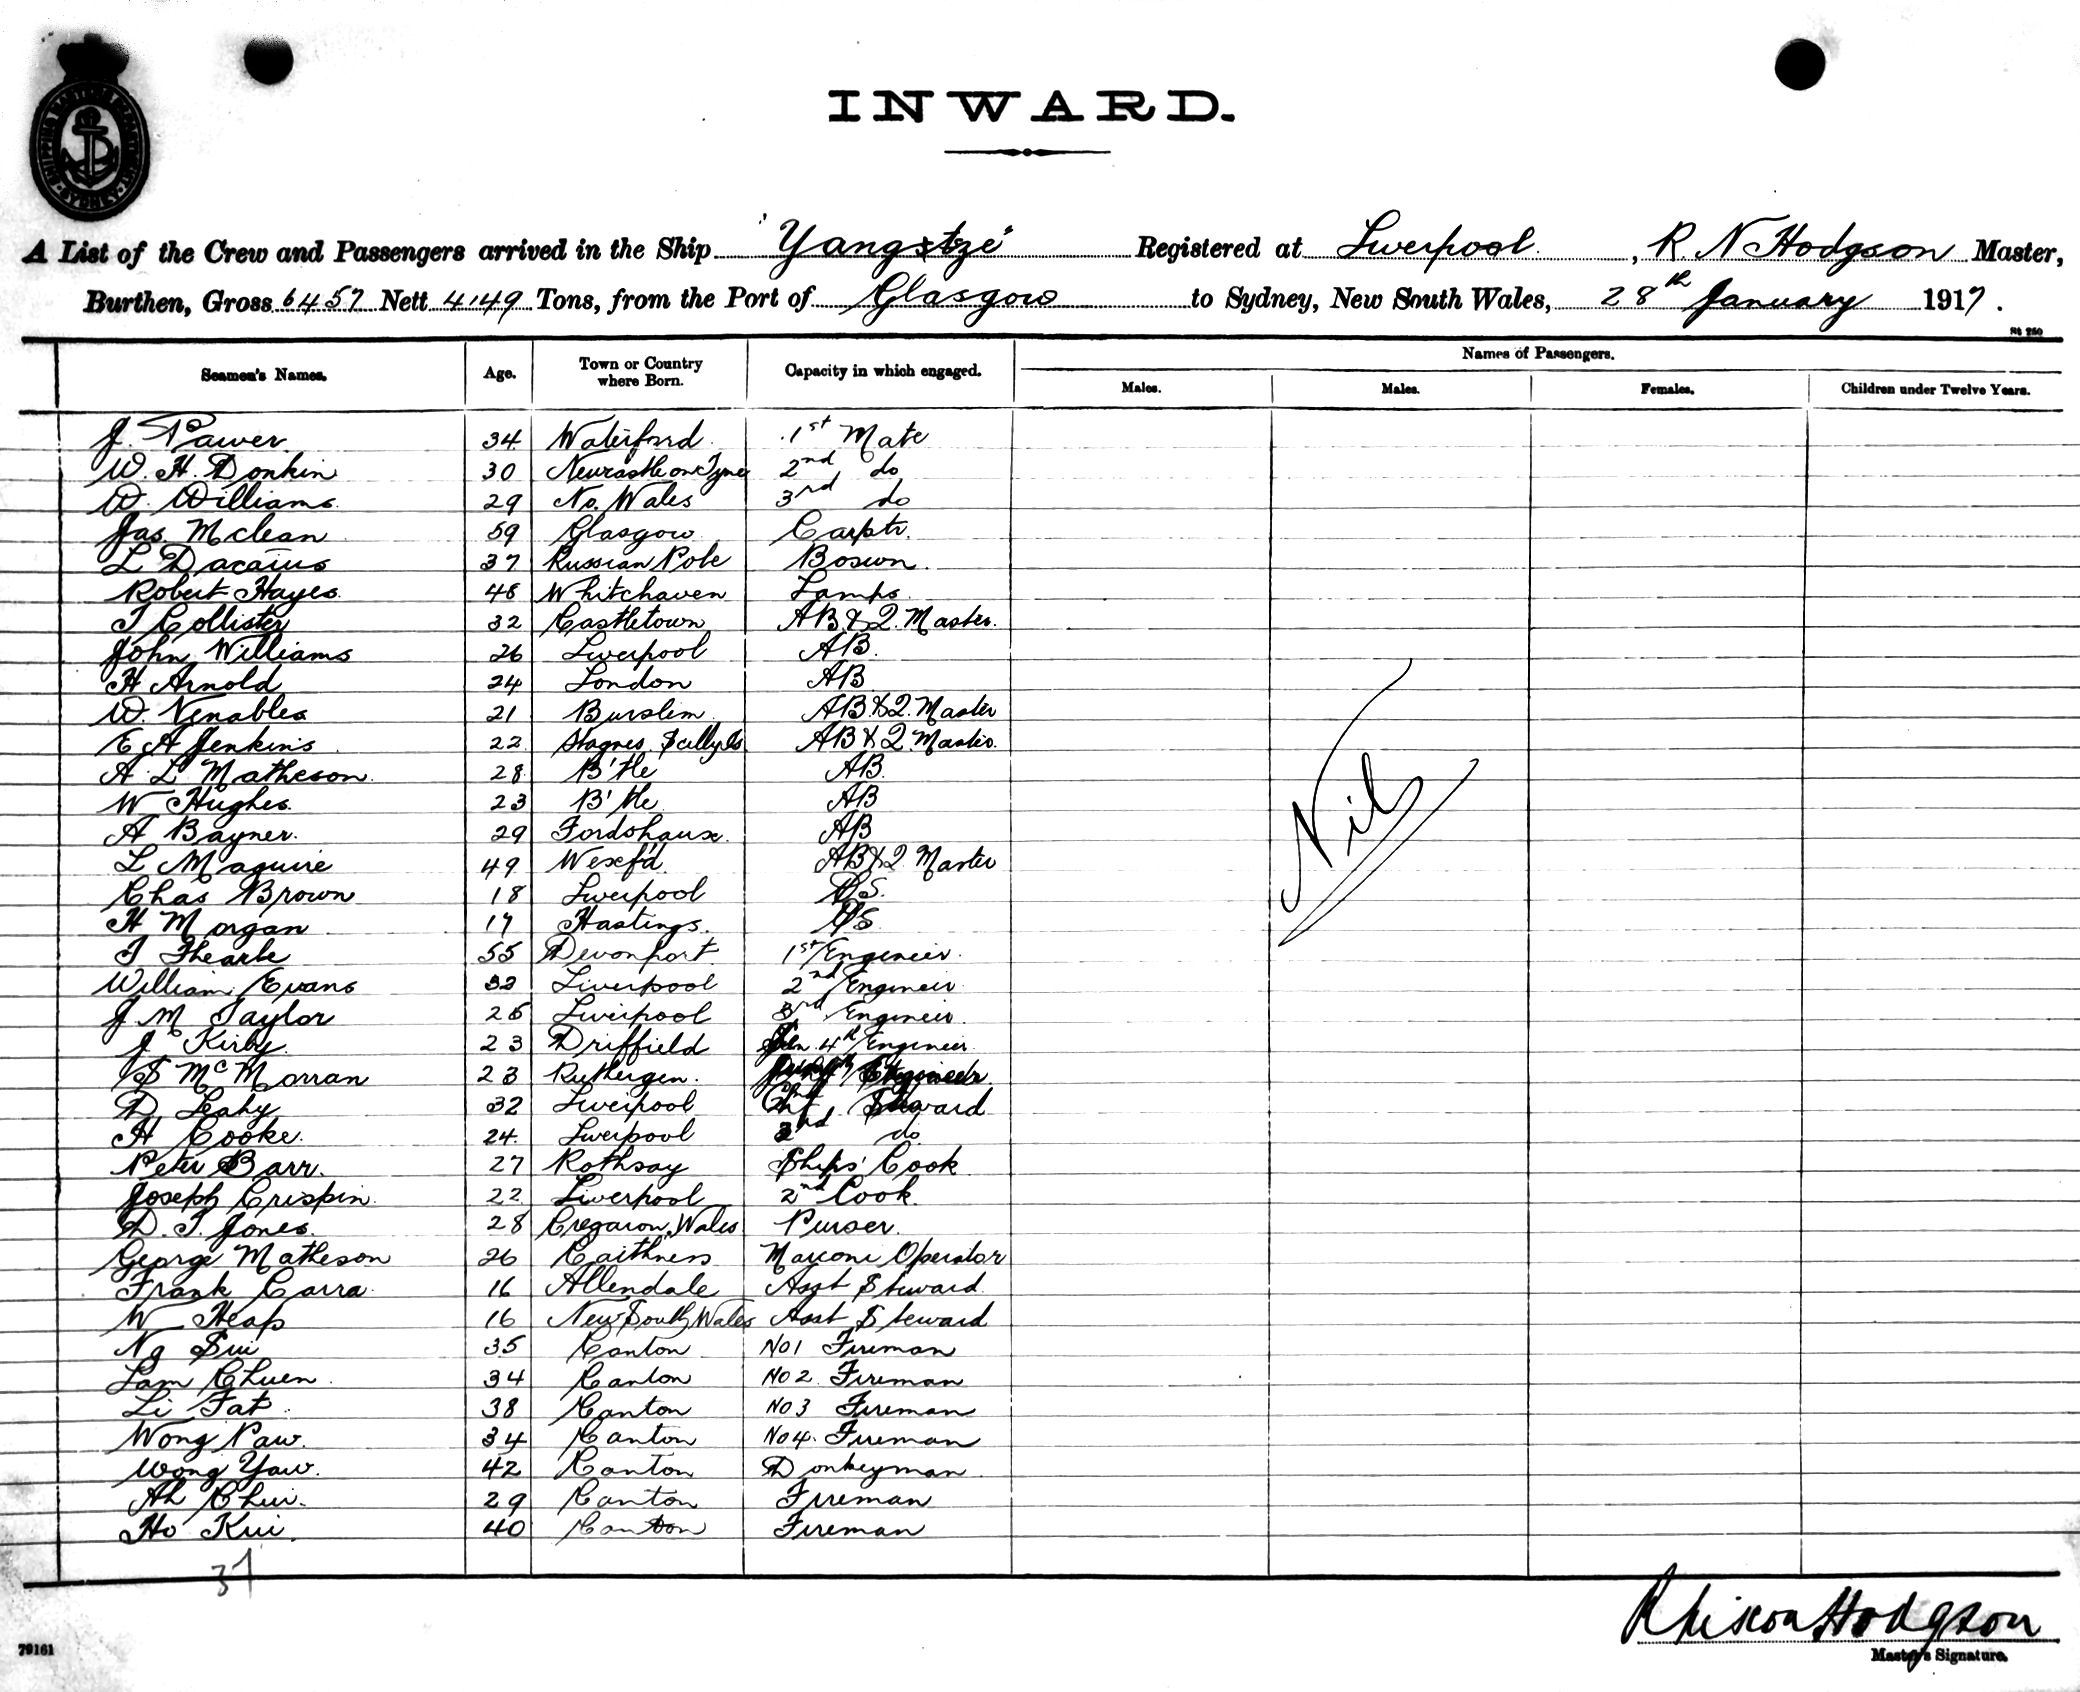 SHIPPING MASTER'S DEPARTMENT SYDNEY
INWARD.
A List of the Crew and Passengers arrived in the Ship "Yangstze" Registered at Liverpool, R. N Hodgson Master,
Burthen, Gross 6457 Nett 4149 Tons, from the Port of Glasgow to Sydney, New South Wales, 28th January 1917.
Seamen's Names. Age. Town or Country where Born. Capacity in which engaged. Names of Passengers.
Males. Males. Females. Children under Twelve Years.
J. Power 34 Waterford 1st Mate
W. H. Donkin 30 Newcastle on Tyne 2nd do
W. Williams 29 No. Wales 3rd do
Jas. Mclean 59 Glasgow Carptr.
L Dacaius 37 Russian Pole Boswn.
Robert Hayes 48 Whitehaven Lamps
T Collister 32 Castletown AB & Q. Master.
John Williams 26 Liverpool AB.
H Arnold 24 London AB
W. Venables 21 Burslem AB. & Q. Master
E A Jenkins 22 St Agnes. Scilly Is AB & Q. Master.
A. L Matheson. 28 B'tle AB.
W Hughes. 23 B'tle AB
A Bayner. 29 AB
L Maguire 49 Wexf'd. AB & Q Master
Chas Brown 18 Liverpool OS.
H Morgan 17 Hastings. OS
T Thearle 55 Devonport. 1st Engineer.
William Evans 32 Liverpool 2nd Engineer
J. M Taylor 26 Liverpool 3rd Engineer.
J Kirby. 23 Driffield 4th Engineer
S McMorran 23 Ruthergen. Engineer.
D. Leahy 32 Liverpool Chf Steward
H Cooke. 24. Liverpool 2nd do
Peter Barr. 27 Rothsay Ships' Cook
Joseph Crispin. 22 Liverpool 2nd Cook.
D. T. Jones. 28 Cregaron, Wales Purser.
George Matheson 26 Caithness Marconi Operator
Frank Carra. 16 Allendale Asst Steward.
W Heap 16 New South Wales Asst Steward
Ng Sui 35 Canton No1 Fireman
Lam Chuen. 34 Canton No2. Fireman
Li Fat 38 Canton No3 Fireman
Wong Paw. 34 Canton No4. Fireman
Wong Yaw. 42 Canton Donkeyman.
Ah Chui. 29 Canton Fireman
Ho Kui. 40 Canton Fireman
Nil
37
RNixon Hodgson
Master's Signature.
79161